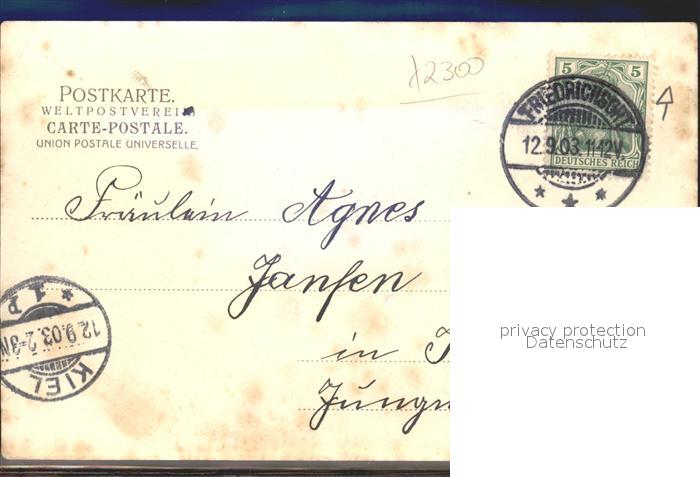 POSTKARTE.
WELTPOSTVEREIN
CARTE-POSTALE.
UNION POSTALE UNIVERSELLE.
12300
5 5
DEUTSCHES REICH
FRIEDRICHSORT
12.9.03.11-12V
Fräulein Agnes
Jansen
in
Jungm
KIEL
12.9.03.2-3N
1 P
privacy protection
Datenschutz